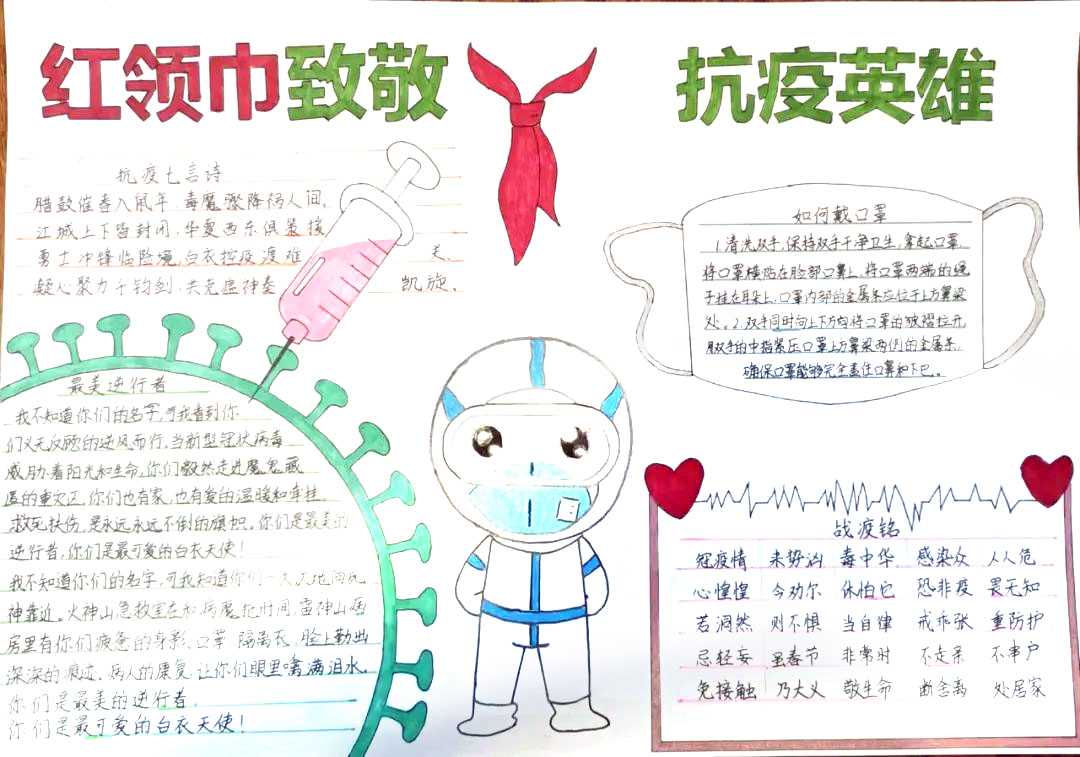 红领巾致敬
抗疫英雄
抗疫七言诗
腊鼓催春入鼠年,毒魔骤降祸人间。
江城上下皆封闭,华夏西东俱策援
勇士冲锋临险境,白衣控疫渡难关。
凝心聚力千钧剑,共克瘟神奏凯旋。
如何戴口罩
1.清洗双手,保持双手干净卫生,拿起口罩
将口罩横贴在脸部口鼻上,将口罩两端的绳
子挂在耳朵上,口罩内部的金属条应位于上方鼻梁
处。2.双手同时向上下方向将口罩的皱褶拉开
用双手的中指紧压口罩上方鼻梁两侧的金属条,
确保口罩能够完全盖住口鼻和下巴。
最美逆行者
我不知道你们的名字,可我看到你
们义无反顾的逆风而行,当新型冠状病毒
威胁着阳光和生命,你们毅然走进魔鬼藏
匿的重灾区,你们也有家,也有爱的温暖和牵挂。
救死扶伤,是永远永远不倒的旗帜,你们是最美的
逆行者,你们是最可爱的白衣天使!
我不知道你们的名字,可我知道你们一次次地向死
神靠近。火神山急救室在和病魔抢时间,雷神山病
房里有你们疲惫的身影,口罩,隔离衣,脸上勒出
深深的痕迹,病人的康复,让你们眼里噙满泪水,
你们是最美的逆行者,
你们是最可爱的白衣天使!
战疫铭
冠疫情 来势汹 毒中华 感染众 人人危
心惶惶 今劝尔 休怕它 恐非疫 畏无知
若洞然 则不惧 当自律 戒乖张 重防护
忌轻妄 虽春节 非常时 不走亲 不串户
免接触 乃大义 敬生命 断舍离 处居家